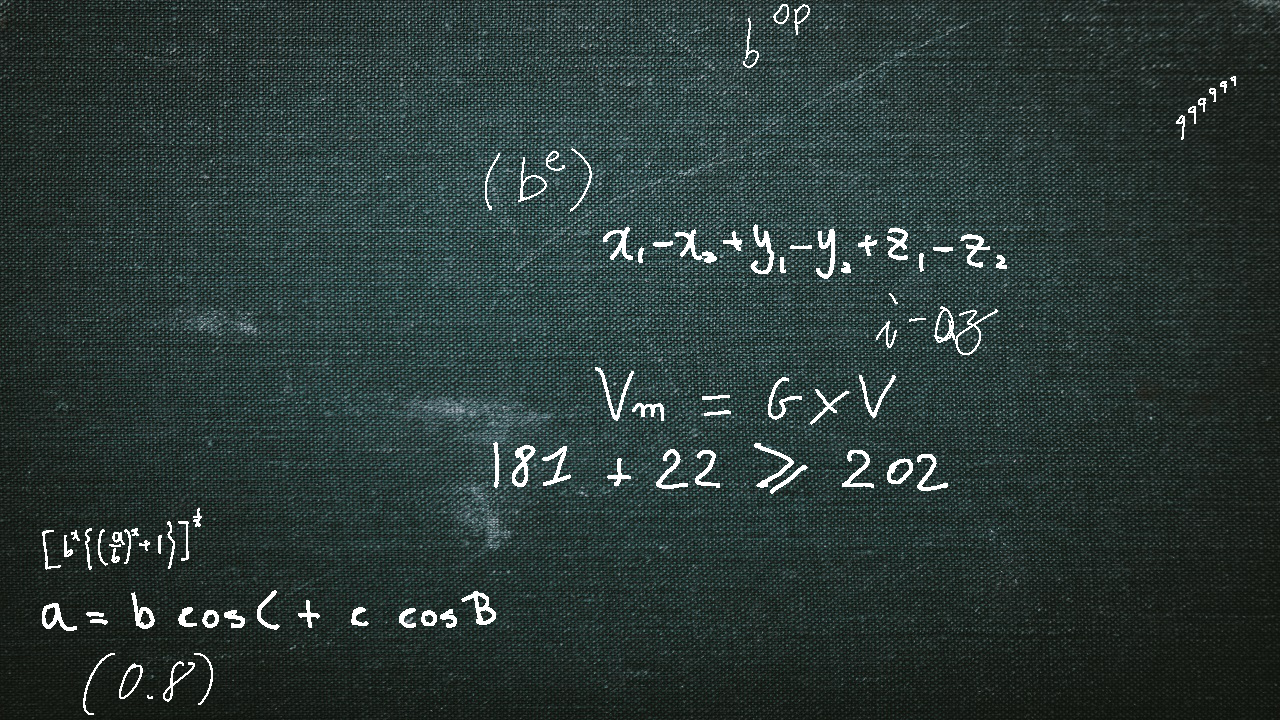 b^{op}
999999
(b^e)
x₁-x₂+y₁-y₂+z₁-z₂
i-az
Vm = G×V
181 + 22 ⩾ 202
[b^x{(a/b)^x+1}]^{1/x}
a = b cos C + c cos B
(0.8)